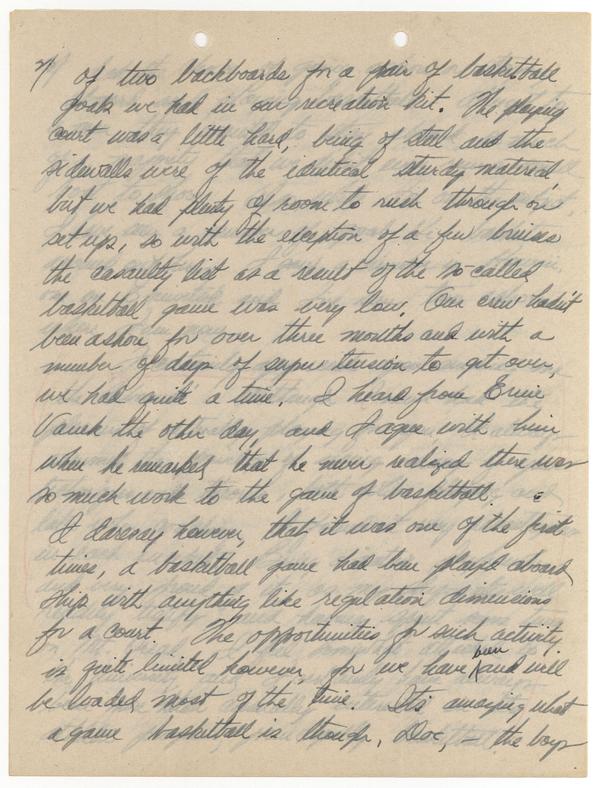 2/ of two backboards for a pair of basketball
goals we had in our recreation kit. The playing
court was a little hard, being of steel and the
sidewalls were of the identical sturdy material,
but we had plenty of room to rush through on
set ups, so with the exception of a few bruises
the casualty list as a result of the so-called
basketball game was very low. Our crew hadn't
been ashore for over three months and with a
number of days of super tension to get over,
we had quite a time. I heard from Ernie
Vanek the other day, and I agree with him
when he remarked, that he never realized there was
so much work to the game of basketball.
I daresay however, that it was one of the first
times, a basketball game had been played aboard
ship with anything like regulation dimensions
for a court. The opportunities for such activity
is quite limited however, for we have been and will
be loaded most of the time. Its amazing what
a game basketball is though, Doc, – the boys